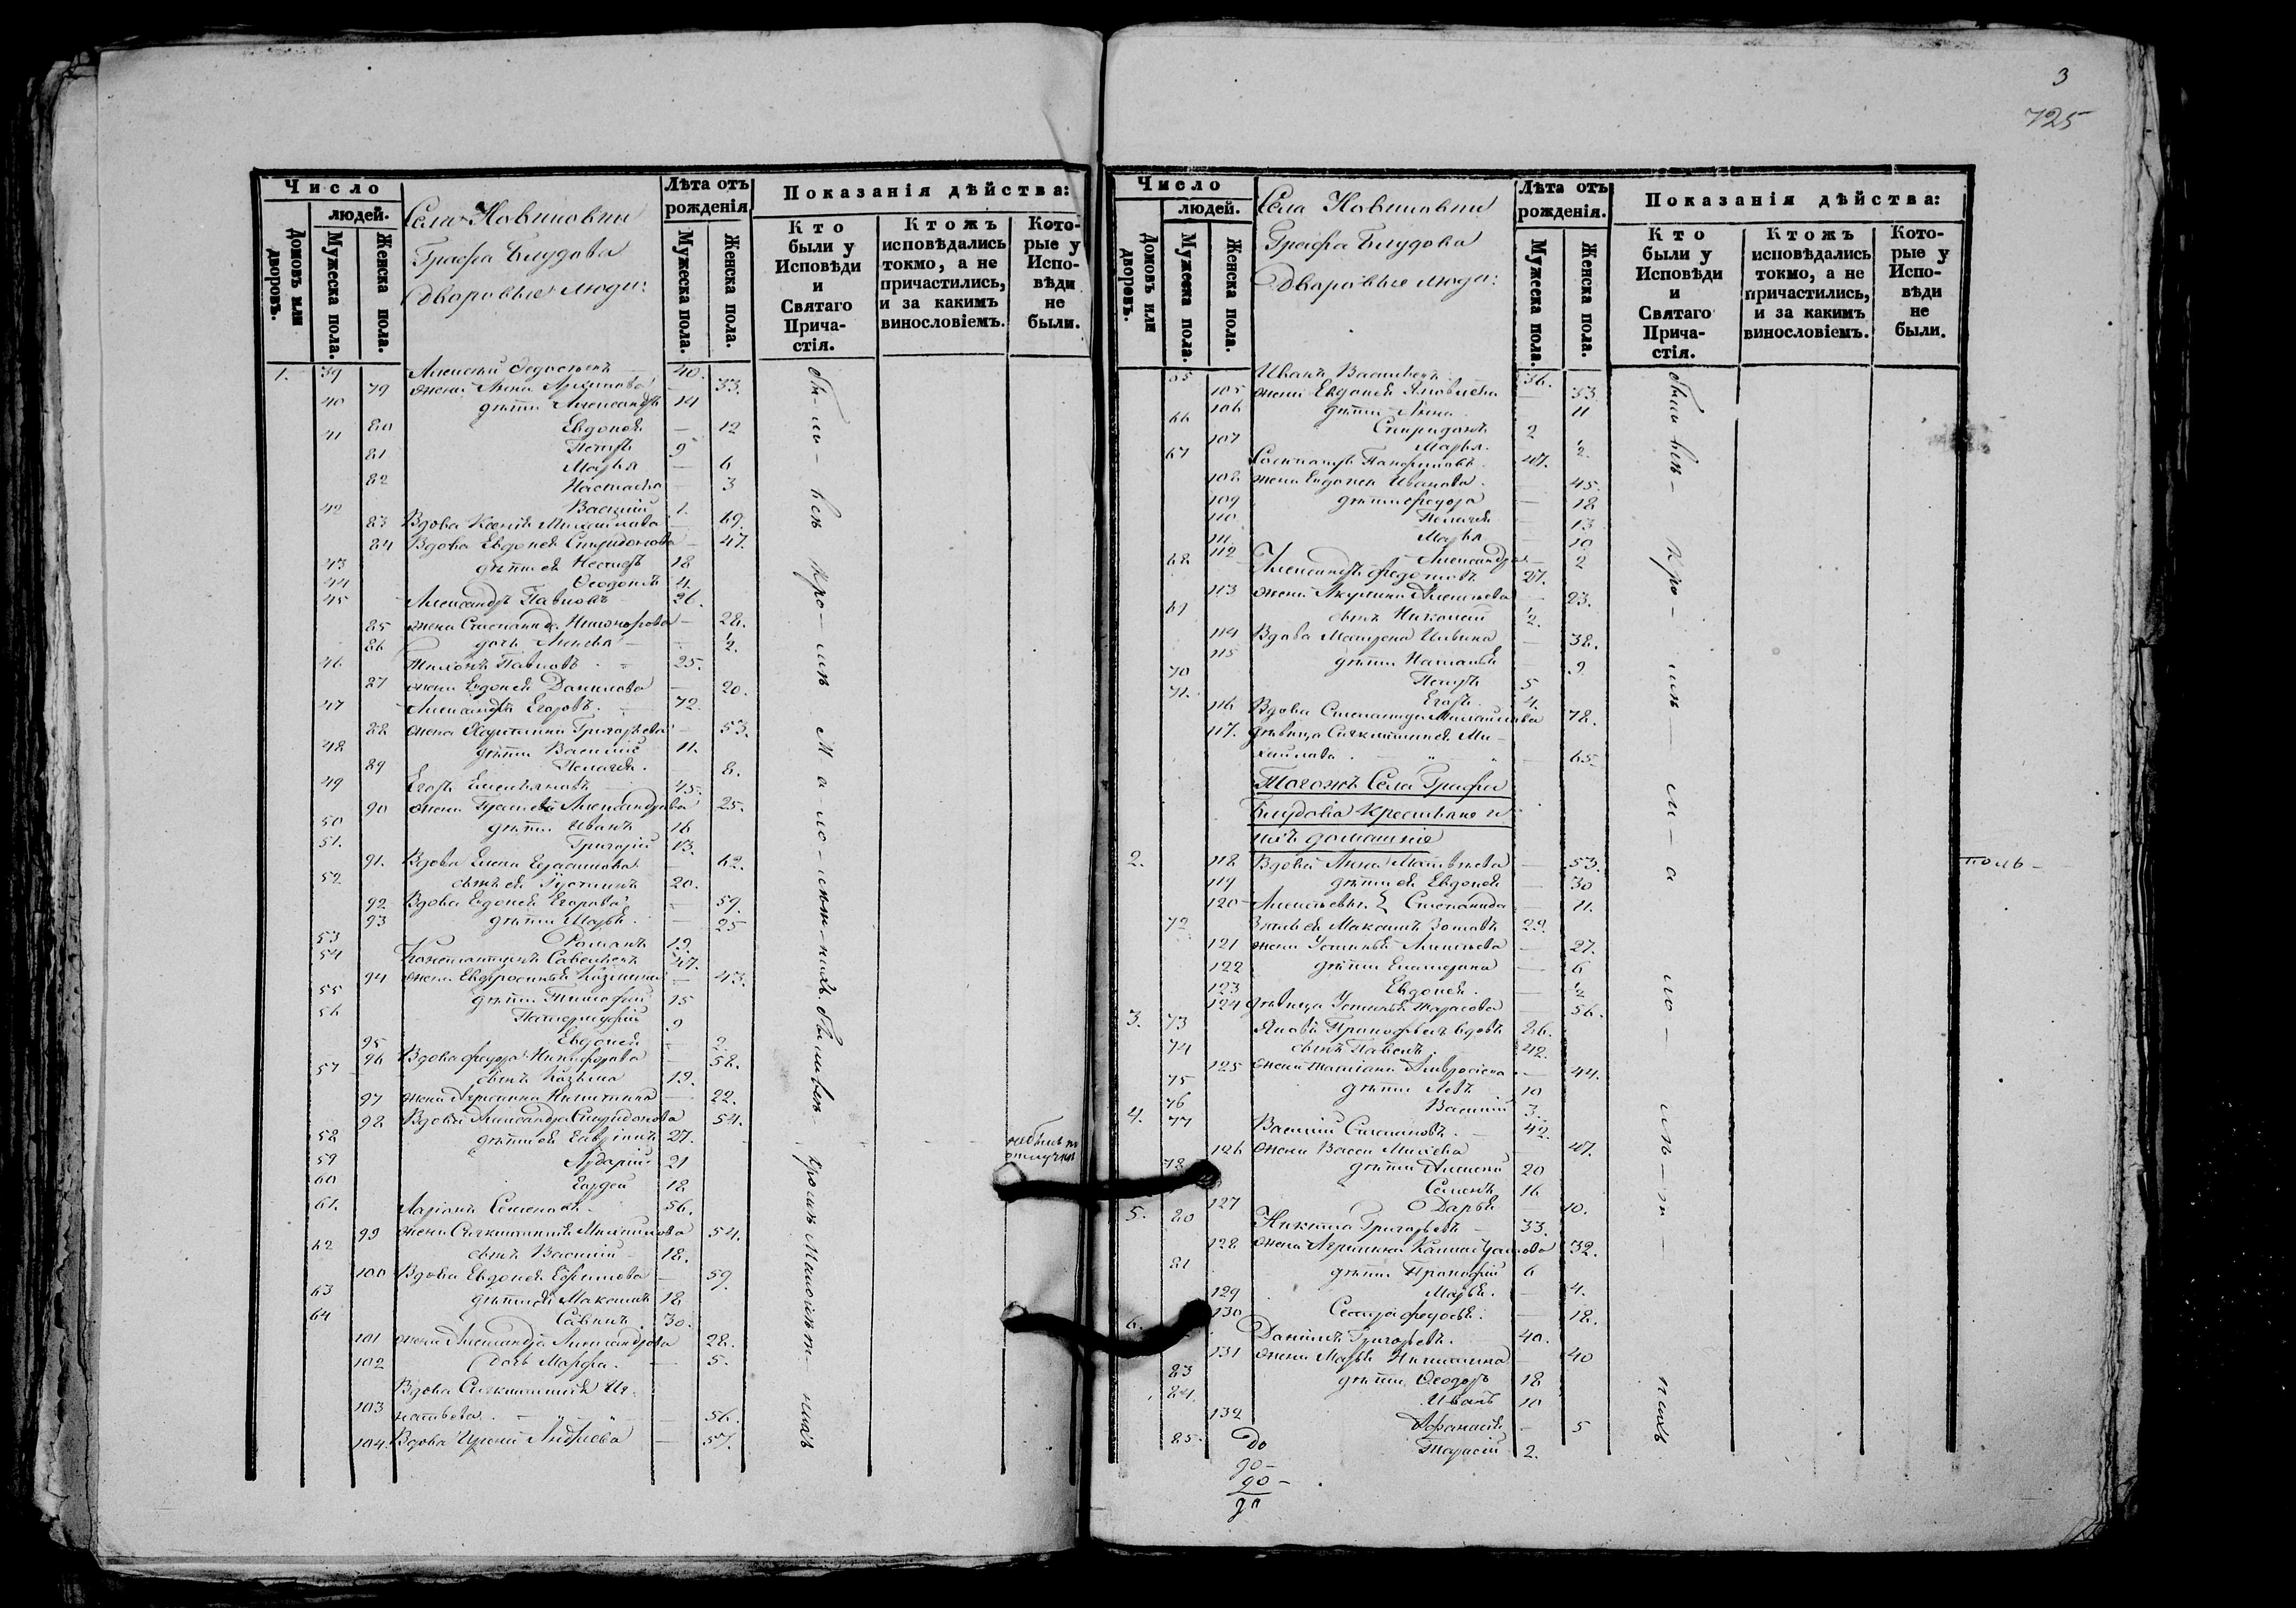 Число
людей.
Домовъ или дворовъ.
Мужеска пола.
Женска пола.
Села Новиновки
Графа Блудова
Дворовые люди:
Лѣта отъ рожденія
Мужеска пола.
Женска пола.
Показанія дѣйства:
Кто были у Исповѣди и Святаго Причастія.
Ктожъ исповѣдались токмо, а не причастились, и за какимъ винословіемъ.
Которые у Исповѣди не были.
1. 39 Алексѣй 40.
79 жена Анна Архипова — 33.
40 дѣти Александръ 14
80 Евдокея — 12
41 Петръ 9
81 Марья — 6
82 Настасья — 3
42 Василій 1.
83 Вдова Ксенія Михайлова — 69.
84 Вдова Евдокея Спиридонова — 47.
43 дѣти ея Нестеръ 18
44 Ѳеодотъ 4.
45 Александръ Павловъ 26.
85 жена Степанида Никифорова — 28.
86 дочь — ½.
46 Тихонъ Павловъ 25.
87 жена Евдокея Данилова — 20.
47 Александръ Егоровъ. 72.
88 жена Харитина Григорьева — 53.
48 дѣти Василій 11.
89 Пелагея. — 8.
49 Егоръ Емельяновъ 45.
90 жена Александрова 25.
50 дѣти Иванъ 16
51. Григорій 13.
91. Вдова Елена Герасимова — 62.
52 сынъ ея Густинъ 20.
92 Вдова Евдокея Егорова — 59.
93 дѣти Марья. — 25
53 Романъ 19.
54 Константинъ Савельевъ 47.
94 жена Евфросинья Козмина — 43.
55 дѣти Тимофей 15
56 9
95 Евдокея — 2.
96 Вдова Федора Никифорова — 58.
57 сынъ Козьма 19.
97 жена Никитина — 22.
98 Вдова Александра Спиридонова 54.
58 дѣти ея 27.
59 21
60 18
61. Ларіонъ Семеновъ. 56.
99 жена Михайлова 54.
62 сынъ Василій 18.
100 Вдова Евдокея Ефимова — 59.
63 дѣти ея Максимъ 18
64 Савинъ. 30.
101 жена Александра Александрова 28.
102 дочь Марфа. — 5.
Вдова Иг-
103 натьева. — 56.
104. Вдова Ирина Андреева — 57.
бы-ли-всѣ кро-мѣ ма-ло-лѣт-нихъ. были всѣ кромѣ малолѣт-нихъ
отлучкѣ
3
725
Число
людей.
Домовъ или дворовъ.
Мужеска пола.
Женска пола.
Села Новиновки
Графа Блудова
Дворовые люди:
Лѣта отъ рожденія.
Мужеска пола.
Женска пола.
Показанія дѣйства:
Кто были у Исповѣди и Святаго Причастія.
Ктожъ исповѣдались токмо, а не причастились, и за какимъ винословіемъ.
Которые у Исповѣди не были.
65 Иванъ Васильевъ 56.
105 жена Евдокея Яковлева — 53.
106 дѣти Анна 11
66 Спиридонъ 2
107 Марья. ½.
67 47.
108 жена Евдокея Иванова — 45.
109 дѣти Федора — 18
110 Пелагея — 13
111. Марья — 10
112 Александра — 2
68 Александръ Федотовъ 27.
113 жена Акулина — 23.
69 сынъ Николай ½.
114 Вдова Матрена Ильина — 38.
115 дѣти Наталья — 9
70 Петръ 5
71. Егоръ. 4.
116 Вдова Степанида Михайлова 78.
117. дѣвица Ми-
хайлова. — 65
Тогожъ Села Графа
Блудова Крестьяне и
ихъ домашніе
2. 118 Вдова Анна Матвѣева — 53.
119 дѣти ея Евдокея — 30
120 Алексѣевы. Степанида — 11.
72 Зять ея Максимъ Зотовъ 29.
121 жена Устинья Алексѣева — 27.
122 дѣти Екатерина — 6
123 Евдокея. — ½
124 дѣвица Устинья Тарасова — 56.
3. 73 Яковъ Прокофьевъ вдовъ 86.
74 сынъ Павелъ. 42.
125 жена Татіана Амвросіева — 44.
75 дѣти Левъ 10
76 Василій 3.
4. 77 Василій Степановъ. 42.
126 жена Васса — 47.
78 дѣти Алексѣй 20
Семенъ 16
127 Дарья — 10.
5. 80 Никита Григорьевъ — 33.
128 жена 32.
81 дѣти Прокофій 6
129 Марья. — 4.
130 Сестра Федосья. — 18.
6. Даніилъ Григорьевъ. 40.
131 жена Марья Никитина — 40
83 дѣти Ѳеодоръ 18
84. Иванъ 10
132 Афанасія — 5
85. Тарасій 2.
были всѣ- кро-мѣ — м-а-ло-лѣ-т-нихъ
толь-
до
до-
до-
до